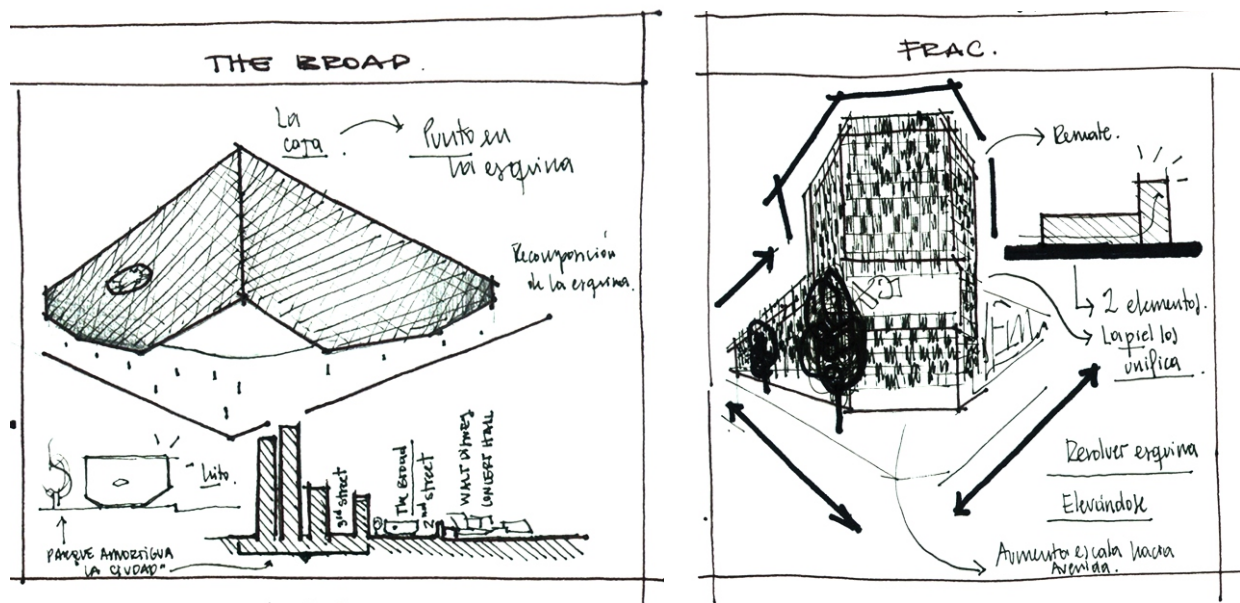 THE BROAD.
La
caja.
Punto en
la esquina
Recomposición
de la esquina.
hito.
PARQUE AMORTIGUA
LA CIUDAD"
3rd street
The Broad
2nd street
WALT DISNEY
CONCERT HALL
FRAC.
Remate.
2 elementos.
La piel los
unifica
Resolver esquina
Elevándose
Aumenta escala hacia
Avenida.